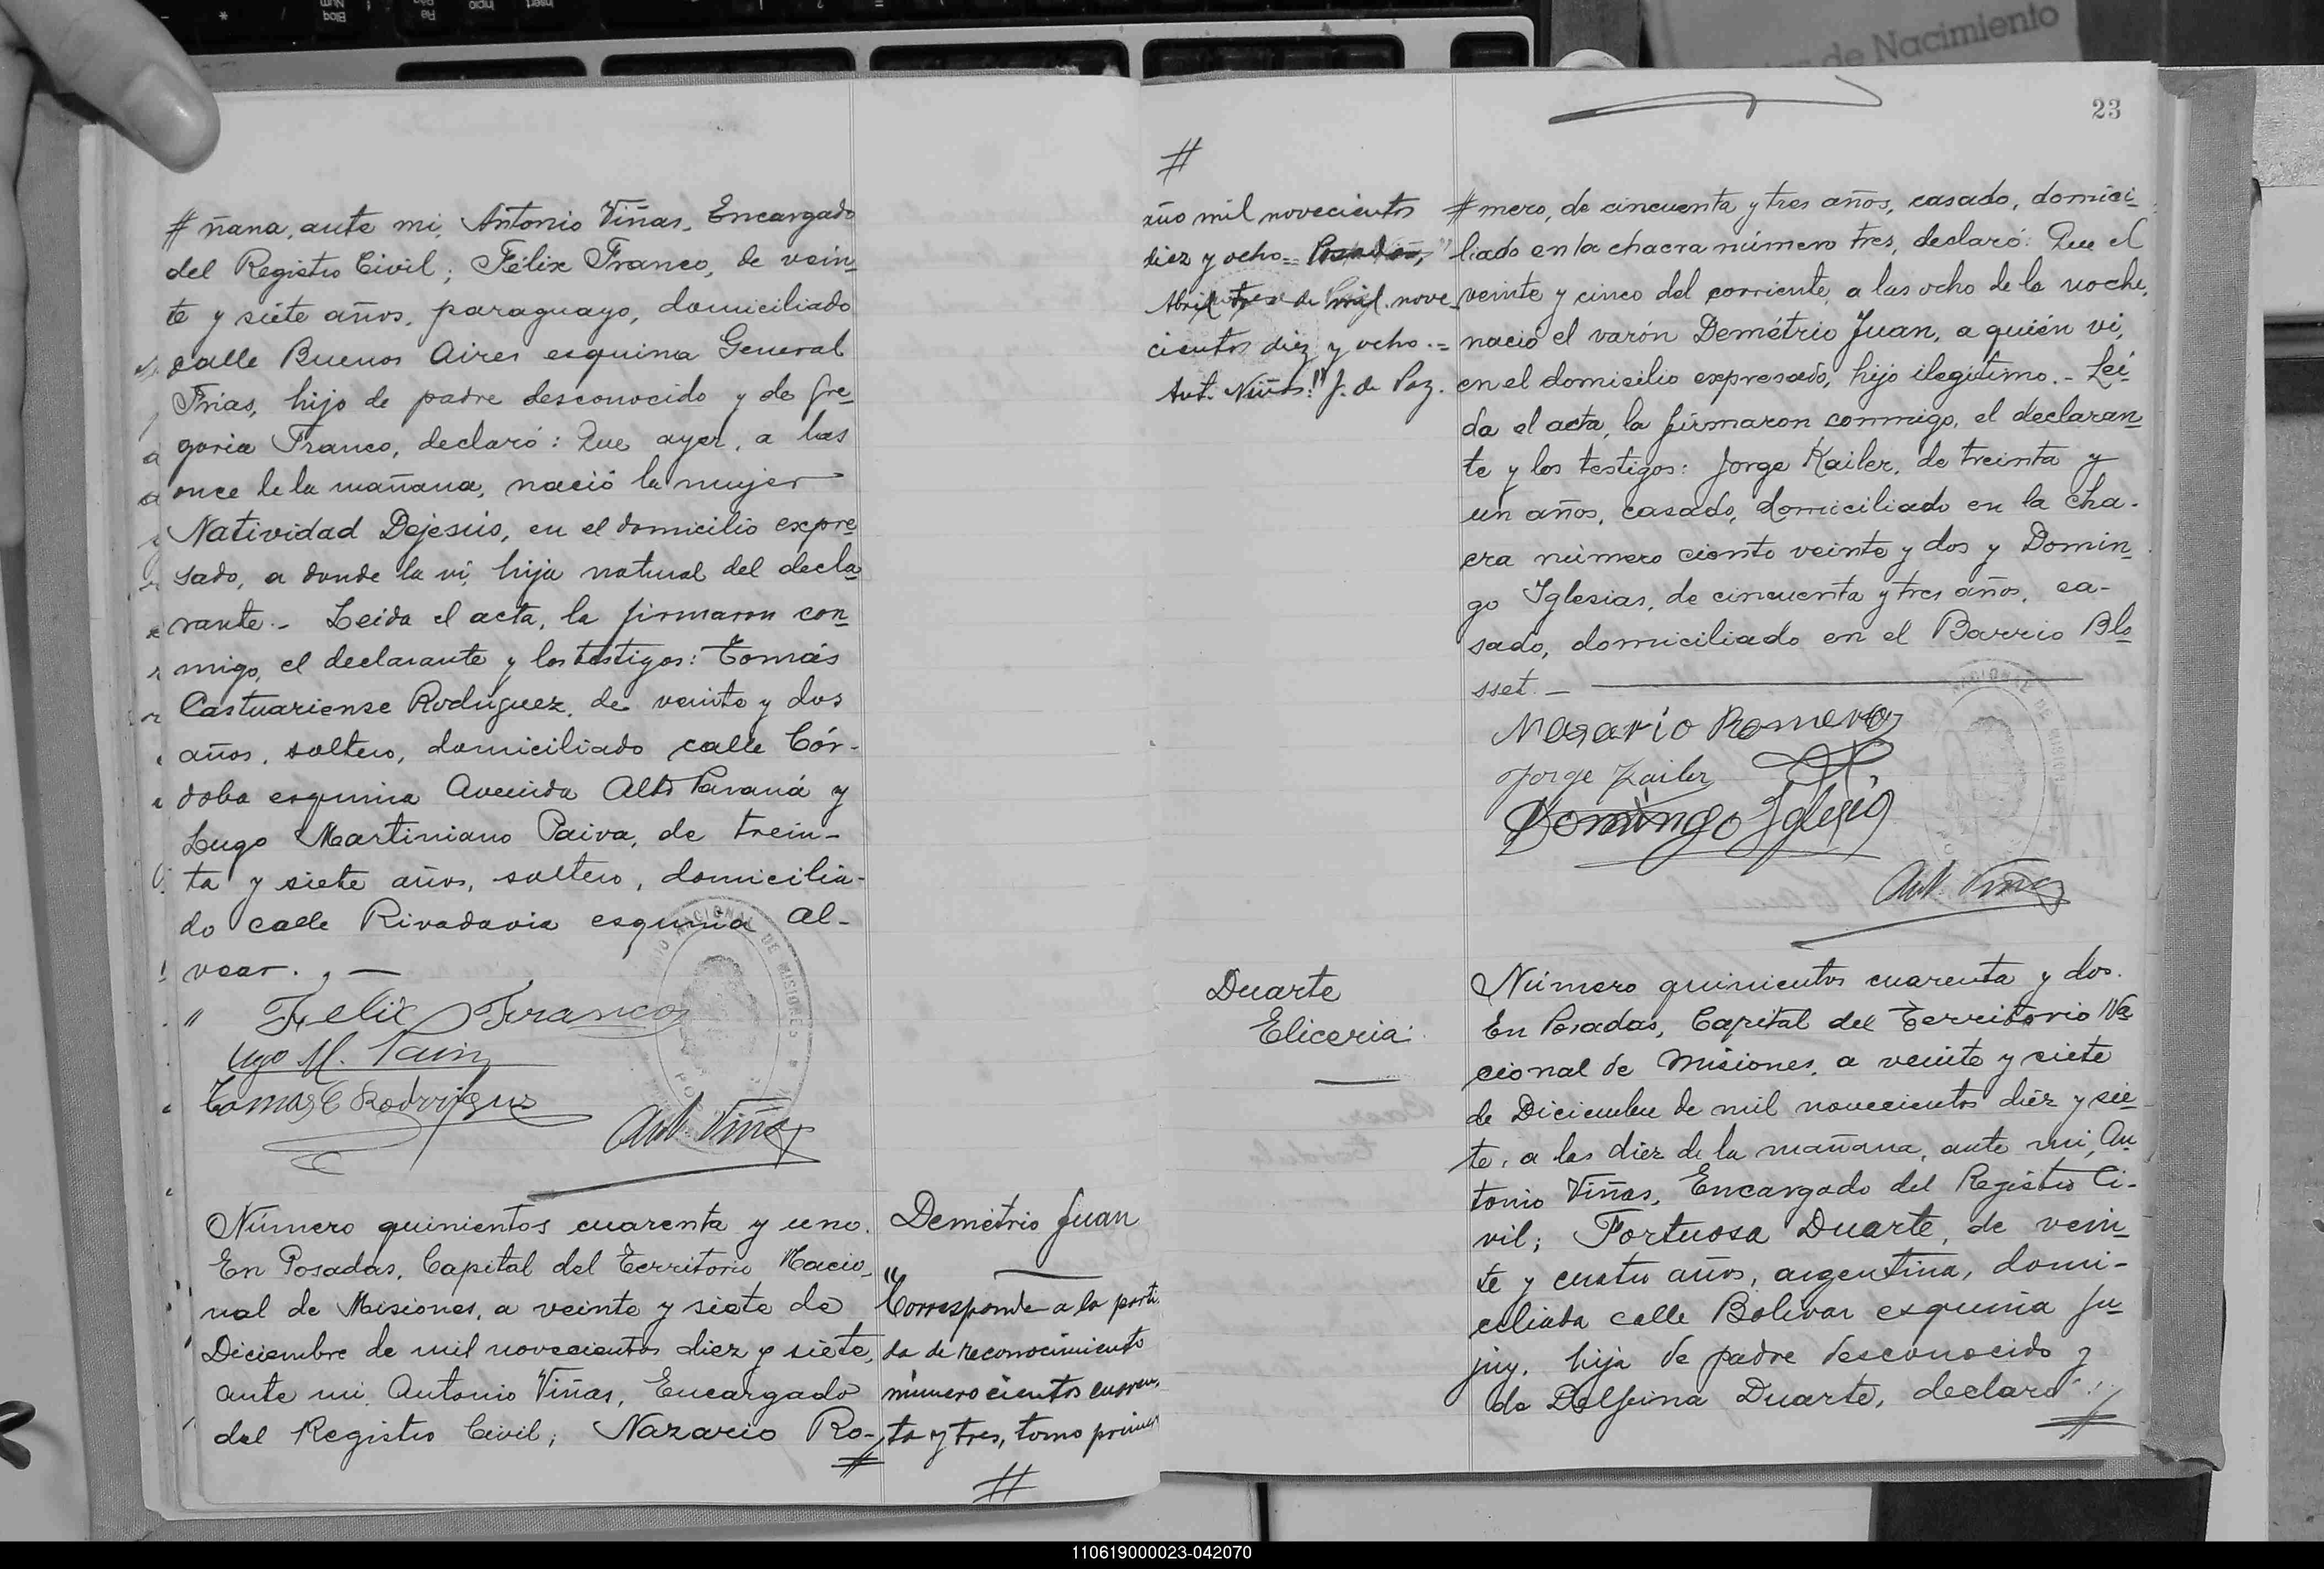 # ñana, ante mi, Antonio Viñas, Encargado
del Registro Civil; Félix Franco, de vein-
te y siete años, paraguayo, domiciliado
calle Buenos Aires esquina General
Frias, hijo de padre desconocido y de Gre-
goria Franco, declaró: Que ayer, a las
once de la mañana, nació la mujer
Natividad Dejesús, en el domicilio expre-
sado, a donde la vi, hija natural del decla-
rante.- Leida el acta, la firmaron con-
migo, el declarante y los testigos: Tomás
Castuariense Rodriguez, de veinte y dos
años, soltero, domiciliado calle Cór-
doba esquina Avenida Alto Paraná y
Lugo Martiniano Paiva, de trein-
ta y siete años, soltero, domicilia-
do calle Rivadavia esquina Al-
vear. , —
" Felix Franco
Ugo M. Paiva
Tomas C Rodriguez
Ant. Viñas
Número quinientos cuarenta y uno.
En Posadas, Capital del Territorio Nacio-
nal de Misiones, a veinte y siete de
Diciembre de mil novecientos diez y siete,
ante mi, Antonio Viñas, Encargado
del Registro Civil; Nazario Ro-
#
Demétrio Juan
"Corresponde a la parti-
da de reconocimiento
número cientos cuaren-
ta y tres, tomo primer
#
23
#
año mil novecientos
diez y ocho.=
Abril de nove-
cientos diez y ocho.=
Ant. Viñas." J. de Paz.
# mero, de cincuenta y tres años, casado, domici-
liado en la chacra número tres, declaró: Que el
veinte y cinco del corriente, a las ocho de la noche,
nació el varón Demétrio Juan, a quién vi,
en el domicilio expresado, hijo ilegítimo.- Lei-
da el acta, la firmaron conmigo, el declaran-
te y los testigos: Jorge Kailer, de treinta y
un años, casado, domiciliado en la cha-
cra número ciento veinte y dos y Domin-
go Iglesias, de cincuenta y tres años, ca-
sado, domiciliado en el Barrio Blo-
sset. —
Nasario Romero
Jorge Kailer
Domingo Iglesias
Ant. Viñas
Duarte
Eliceria
Número quinientos cuarenta y dos.
En Posadas, Capital del Territorio Na-
cional de Misiones, a veinte y siete
de Diciembre de mil novecientos diez y sie-
te, a las diez de la mañana, ante mi, An-
tonio Viñas, Encargado del Registro Ci-
vil; Fortuosa Duarte, de vein-
te y cuatro años, argentina, domi-
ciliada calle Bolivar esquina Ju-
juy, hija de padre desconocido y
de Delfina Duarte, declaró:
#
de Nacimiento
110619000023-042070